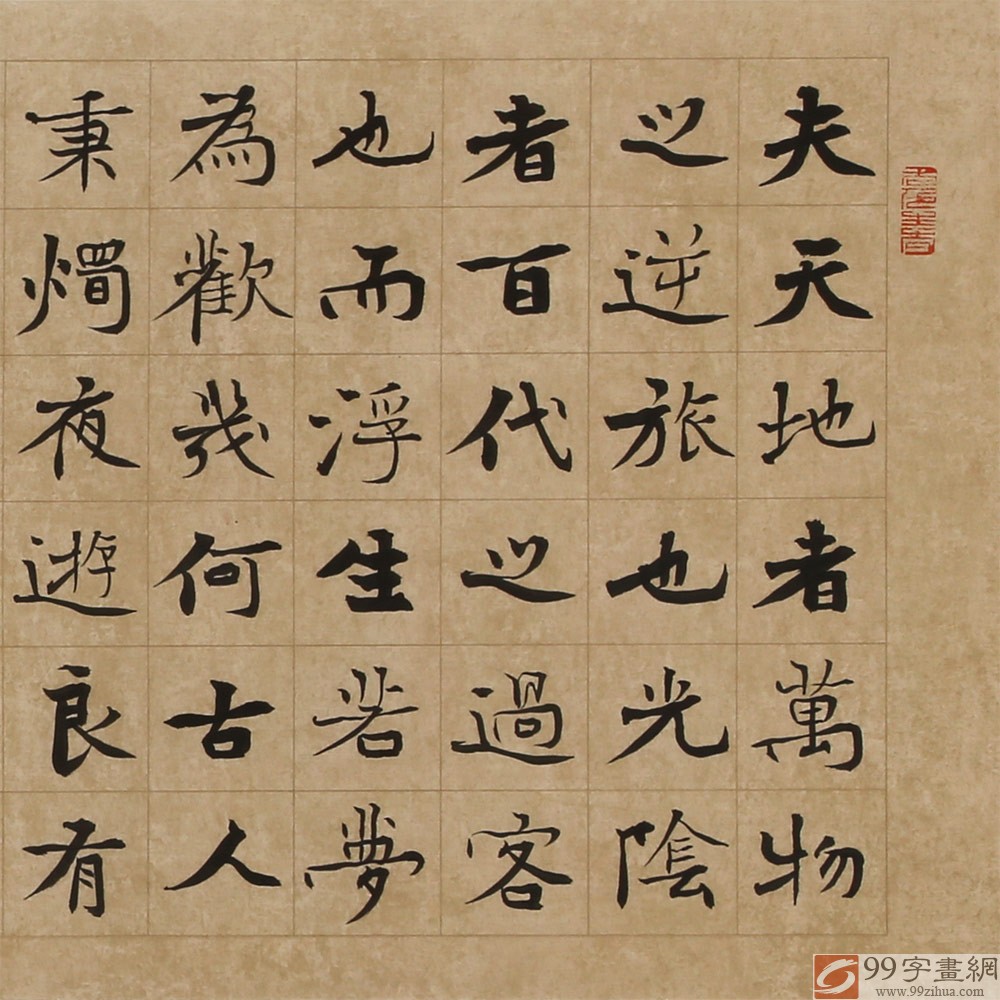 夫天地者萬物
之逆旅也光陰
者百代之過客
也而浮生若夢
為歡幾何古人
秉燭夜遊良有
99字畫網
www.99zihua.com